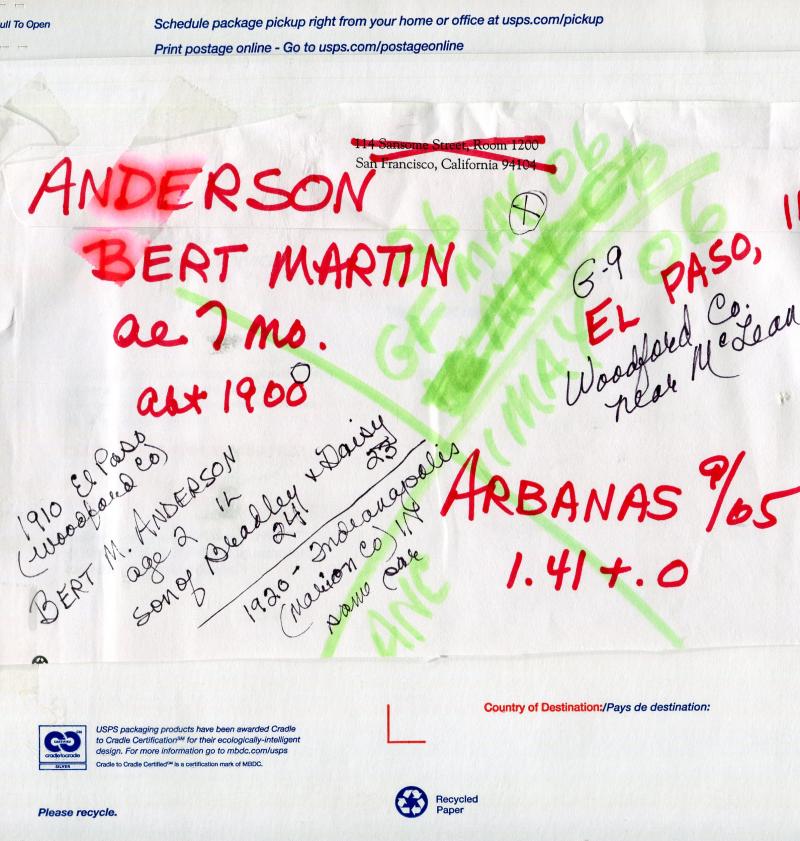 ull To Open
Schedule package pickup right from your home or office at usps.com/pickup
Print postage online - Go to usps.com/postageonline
114 Sansome Street, Room 1200
San Francisco, California 94104
ANDERSON
BERT MARTIN
ae 7 mo.
abt 1900
06
GF MAY 06
1 MAY 06
ANC
G-9
EL PASO,
Woodford Co.
near McLean
1910 El Paso
(Woodford Co)
BERT M. ANDERSON
age 2 IL
son of Bradley & Daisy
24 23
1920 - Indianapolis
(Marion Co) IN
same
ARBANAS 9/05
1.41 +.0
Country of Destination:/Pays de destination:
USPS packaging products have been awarded Cradle
to Cradle Certification℠ for their ecologically-intelligent
design. For more information go to mbdc.com/usps
Cradle to Cradle Certified℠ is a certification mark of MBDC.
CERTIFIED
cradletocradle
SILVER
Please recycle.
Recycled
Paper